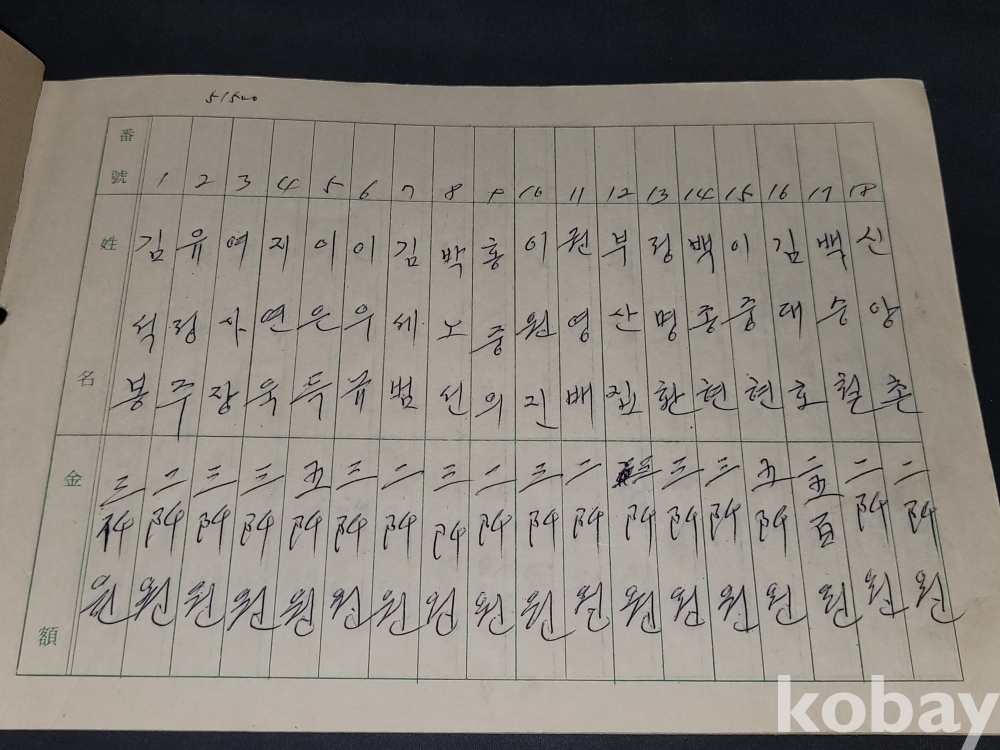 51500
番號
姓名
金額
1 김석봉 三阡원
2 유정주 二阡원
3 여사장 三阡원
4 지연욱 三阡원
5 이은득 五阡원
6 이우규 三阡원
7 김세범 二阡원
8 박노선 三阡원
9 홍중의 二阡원
10 이원진 三阡원
11 권영배 二阡원
12 부산집 三阡원
13 정명환 三阡원
14 백종현 三阡원
15 이중현 五阡원
16 김대호 二五百원
17 백승철 二阡원
18 신앙촌 二阡원
kobay